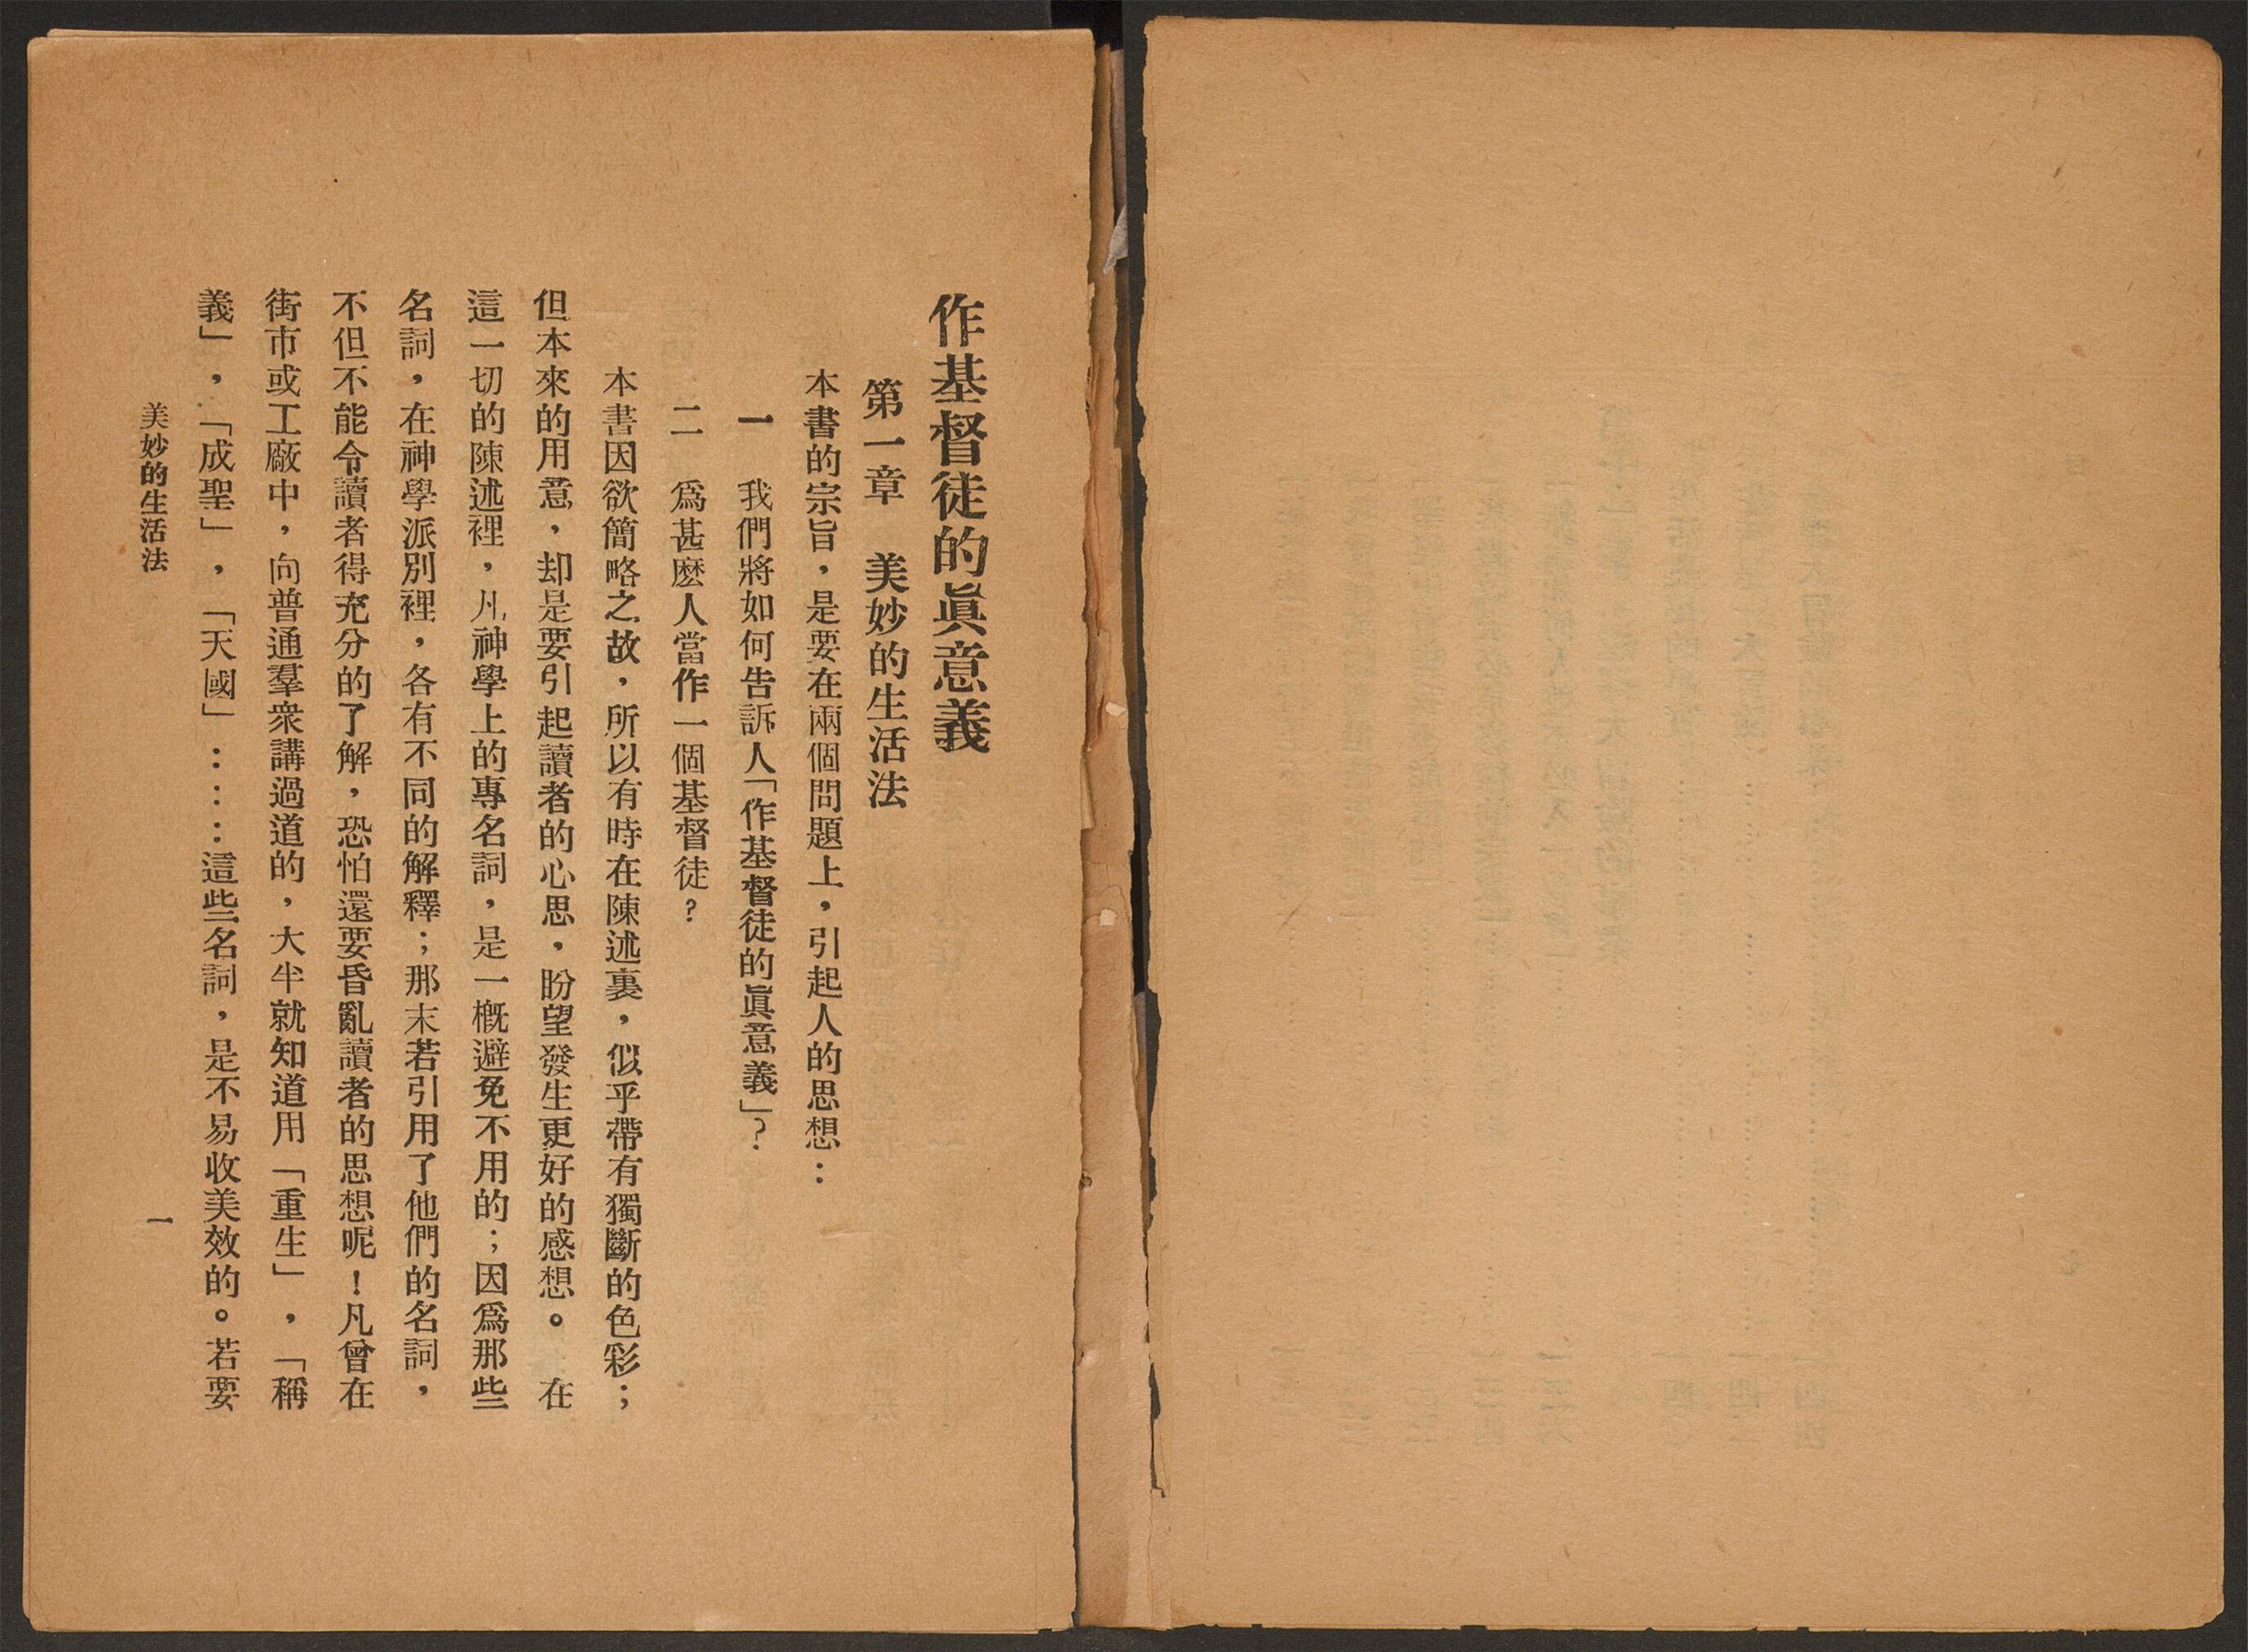 作基督徒的眞意義
第一章　美妙的生活法
本書的宗旨，是要在兩個問題上，引起人的思想：
一　我們將如何告訴人「作基督徒的眞意義」？
二　爲甚麽人當作一個基督徒？
本書因欲簡略之故，所以有時在陳述裏，似乎帶有獨斷的色彩；
但本來的用意，却是要引起讀者的心思，盼望發生更好的感想。在
這一切的陳述裡，凡神學上的專名詞，是一槪避免不用的；因爲那些
名詞，在神學派別裡，各有不同的解釋；那末若引用了他們的名詞，
不但不能令讀者得充分的了解，恐怕還要昏亂讀者的思想呢！凡曾在
街市或工廠中，向普通羣衆講過道的，大半就知道用「重生」，「稱
義」，「成聖」，「天國」：：：這些名詞，是不易收美效的。若要
美妙的生活法
一